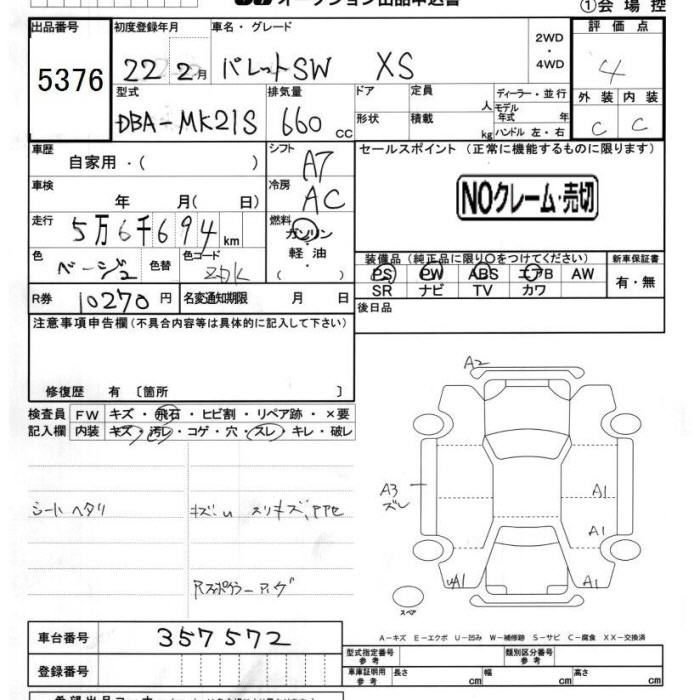 オークション出品申込書
①会場控
出品番号 初度登録年月 車名・グレード 2WD・4WD 評価点
5376 22 2月 パレットSW XS 4
型式 排気量 ドア 定員 人 ディーラー・並行 外装 内装
DBA-MK21S 660cc 形状 積載 kg モデル年式 年 ハンドル 左・右 C C
車歴 自家用・( ) シフト A7 セールスポイント (正常に機能するものに限ります)
車検 年 月( 日) 冷房 AC NOクレーム・売切
走行 5万6千694km 燃料 ガソリン・軽油 ( )
色 ベージュ 色替 色コード 装備品 (純正品に限り○をつけてください) 新車保証書
PS PW ABS エアB AW 有・無
SR ナビ TV カワ
R券 10270円 名変通知期限 月 日 後日品
注意事項申告欄(不具合内容等は具体的に記入して下さい)
修復歴 有 〔箇所 〕
検査員 FW キズ・飛石・ヒビ割・リペア跡・×要
記入欄 内装 キズ・汚レ・コゲ・穴・スレ・キレ・破レ
A2
シートヘタリ
A3 ズレ
A1
A1
A1
UA1
スペア
A-キズ E-エクボ U-凹み W-補修跡 S-サビ C-腐食 XX-交換済
車台番号 357572 型式指定番号 参考 類別区分番号 参考
登録番号 車庫証明用 参考 長さ cm 幅 cm 高さ cm